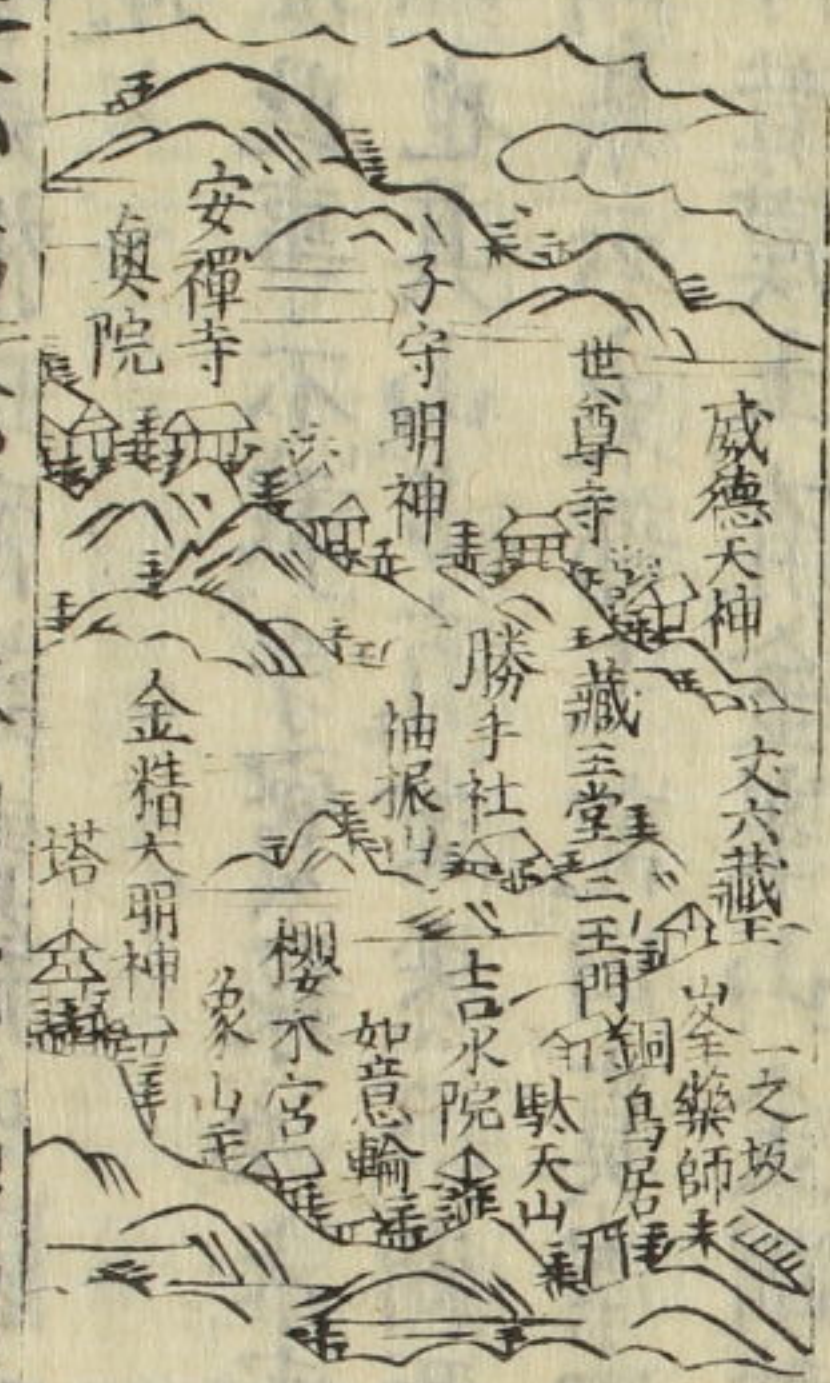 威德天神
世尊寺
子守明神
安禪寺
奥院
丈六藏王
藏王堂
勝手社
袖振山
金精大明神
塔
一之坂
峯藥師
二王門
銅鳥居
駄天山
吉水院
如意輪
櫻木宮
象山